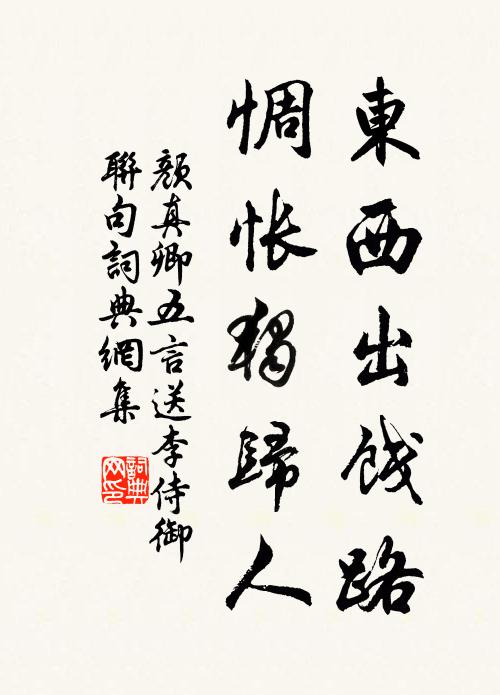 東西出餞路
惆悵獨歸人
顏真卿五言送李侍御
聯句詞典網集
詞典网印